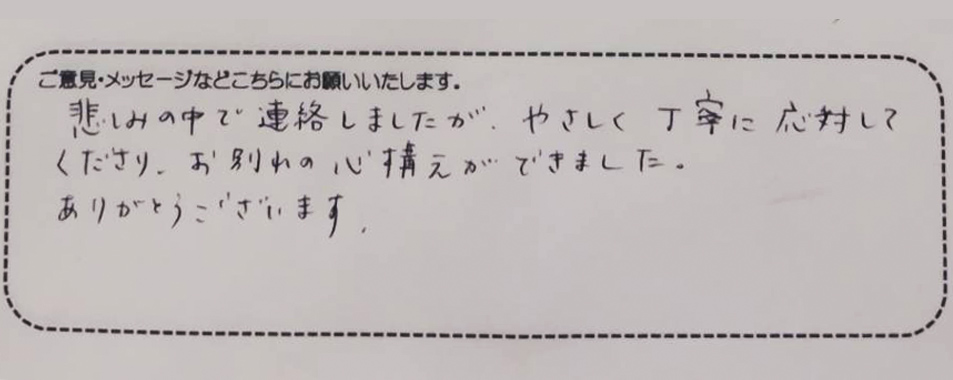 ご意見・メッセージなどこちらにお願いいたします。
悲しみの中で連絡しましたが、やさしく丁寧に応対して
くださり、お別れの心構えができました。
ありがとうございます。